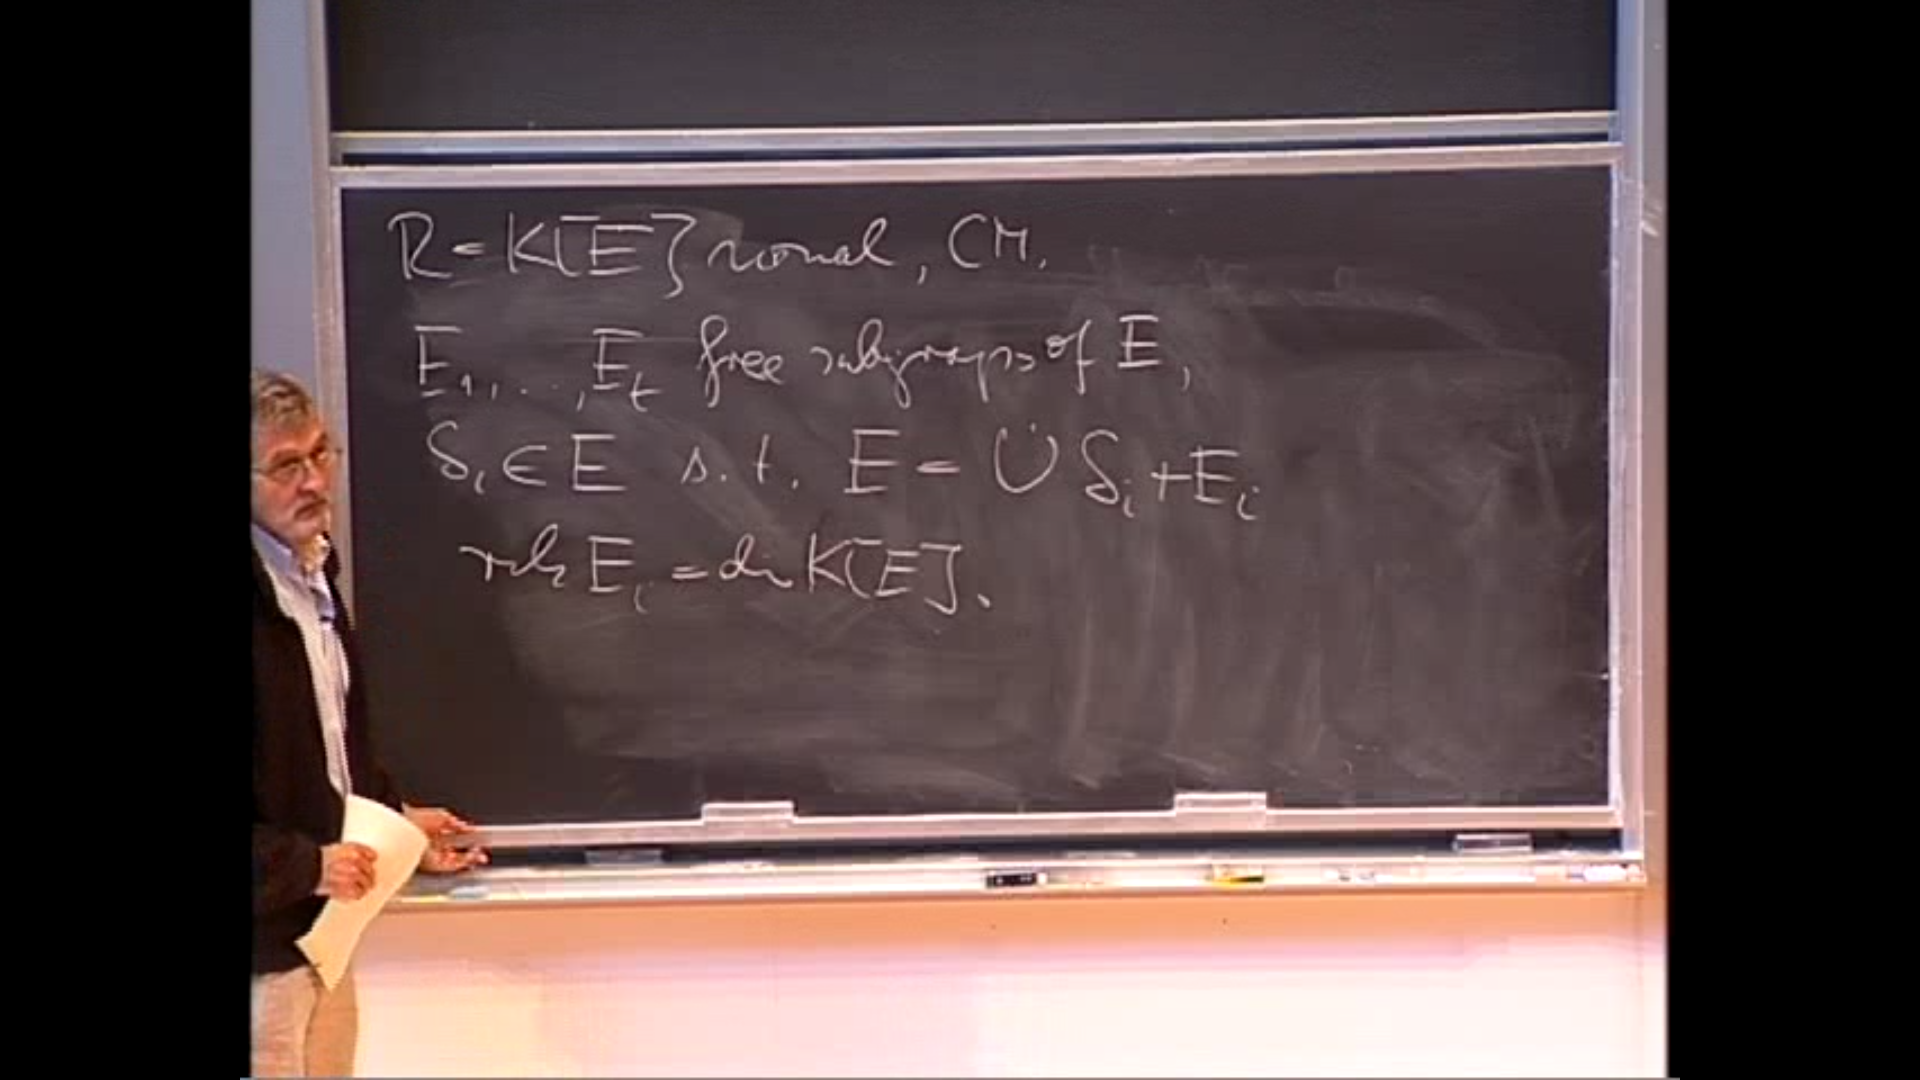 R = K[E] normal, CM.
E₁, ..., Eₜ free subgroups of E,
δᵢ ∈ E s.t. E = ⋃̇ δᵢ + Eᵢ
rk Eᵢ = dim K[E].